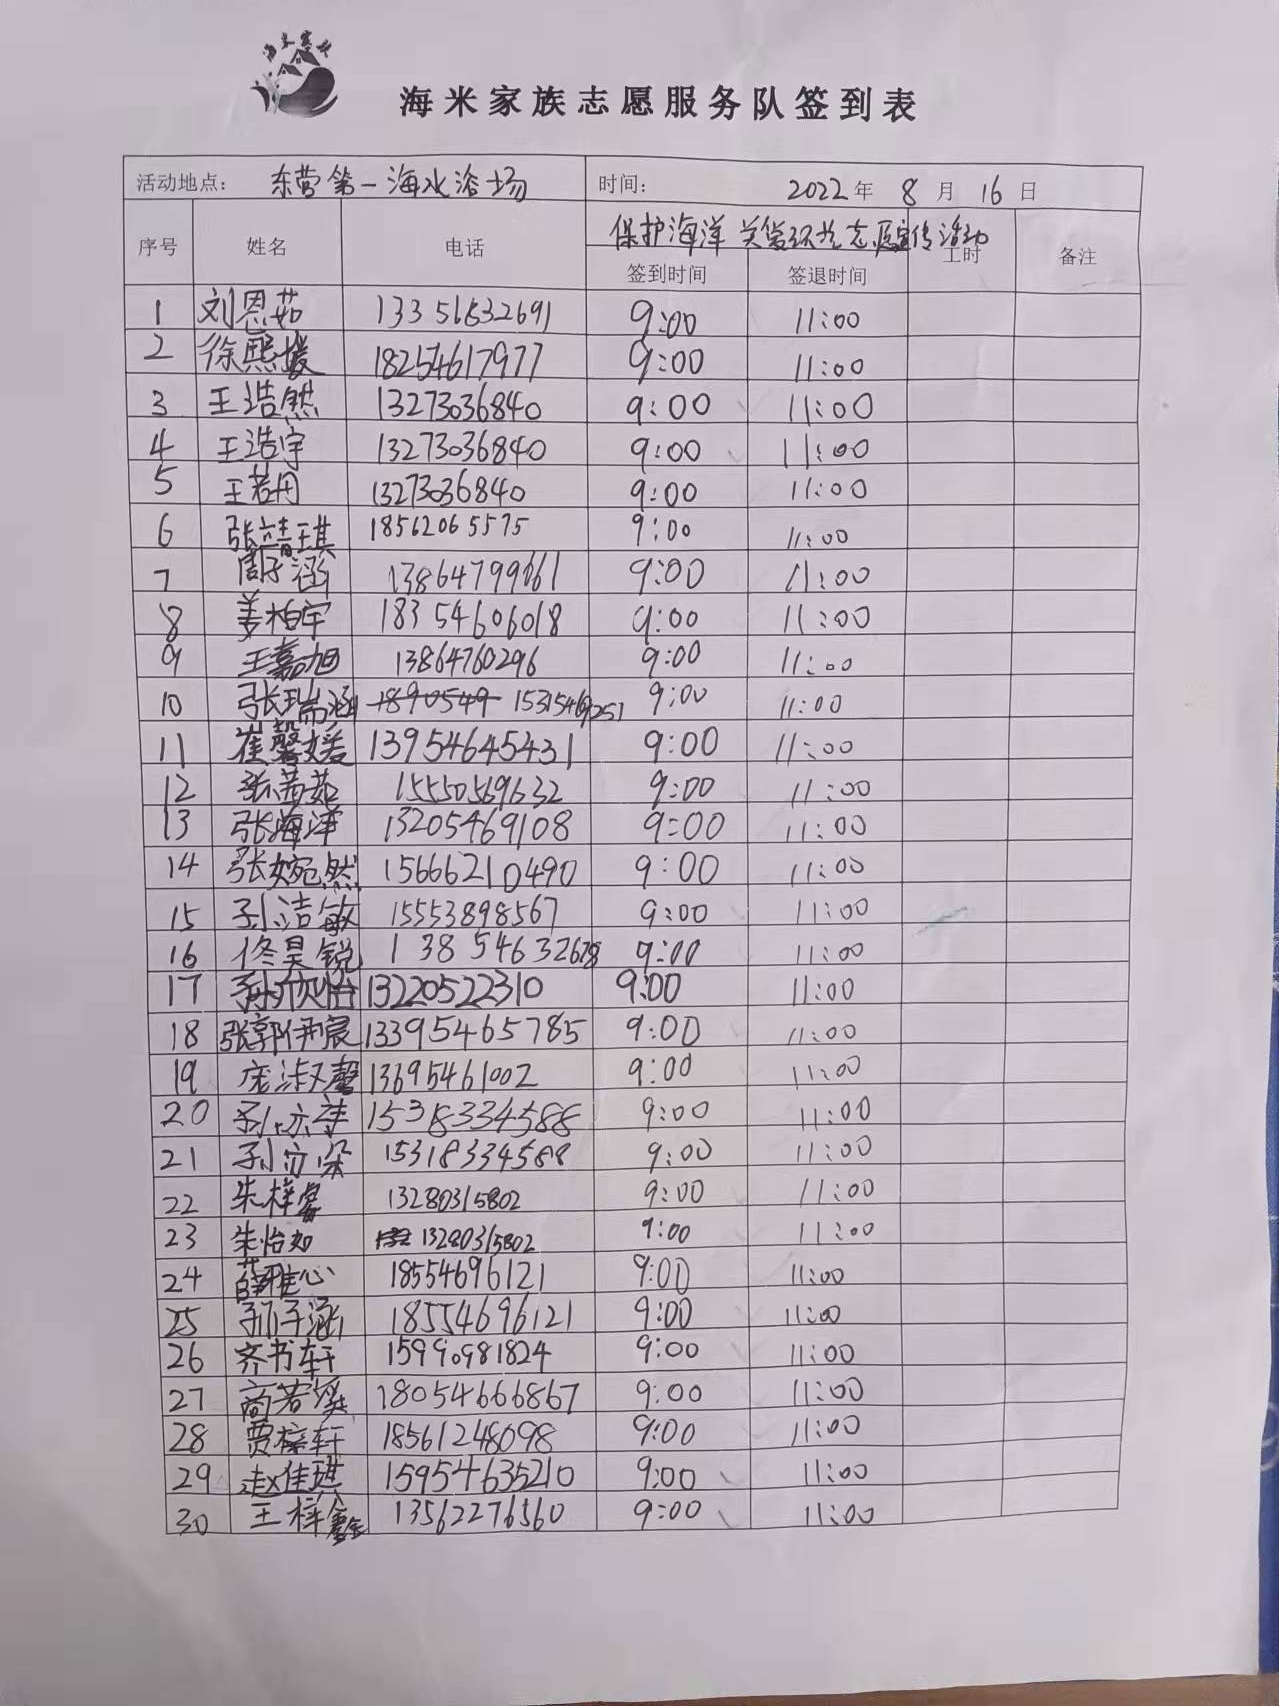 海米家族
海米家族志愿服务队签到表
活动地点: 东营第一海水浴场 时间: 2022年 8月 16日
序号 姓名 电话 保护海洋 关爱环境志愿宣传活动 工时 备注
签到时间 签退时间
1 刘恩茹 13356832691 9:00 11:00
2 徐熙媛 18254617977 9:00 11:00
3 王浩然 13273036840 9:00 11:00
4 王浩宇 13273036840 9:00 11:00
5 王若丹 13273036840 9:00 11:00
6 张靖琪 18562065575 9:00 11:00
7 周子涵 13864799061 9:00 11:00
8 姜柏宇 18354606018 9:00 11:00
9 王嘉旭 13864760296 9:00 11:00
10 张瑞涵 1890549 15315469251 9:00 11:00
11 崔馨媛 13954645431 9:00 11:00
12 张茜茹 15550569632 9:00 11:00
13 张海洋 13205469108 9:00 11:00
14 张婉然 15666210490 9:00 11:00
15 孙洁敏 15553898567 9:00 11:00
16 佟昊锐 13854632678 9:00 11:00
17 孙欣怡 13220522310 9:00 11:00
18 张郭伊宸 13395465785 9:00 11:00
19 庞淑馨 13695461002 9:00 11:00
20 15318334588 9:00 11:00
21 孙亦朵 15318334588 9:00 11:00
22 朱梓睿 13280315802 9:00 11:00
23 朱怡如 13280315802 9:00 11:00
24 薛雅心 18554696121 9:00 11:00
25 孙子涵 18554696121 9:00 11:00
26 齐书轩 15990981824 9:00 11:00
27 商若溪 18054666867 9:00 11:00
28 贾梓轩 18561248098 9:00 11:00
29 赵佳琪 15954635210 9:00 11:00
30 王梓鑫 13562276560 9:00 11:00